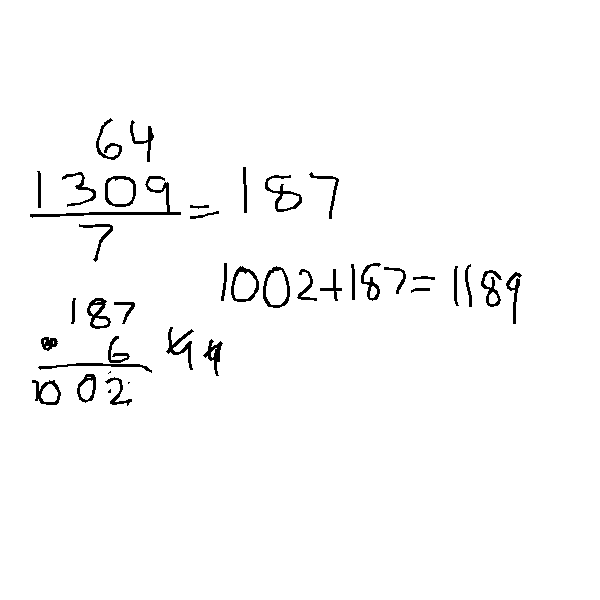 64
1309
7
= 187
1002+187=1189
187
6
1002